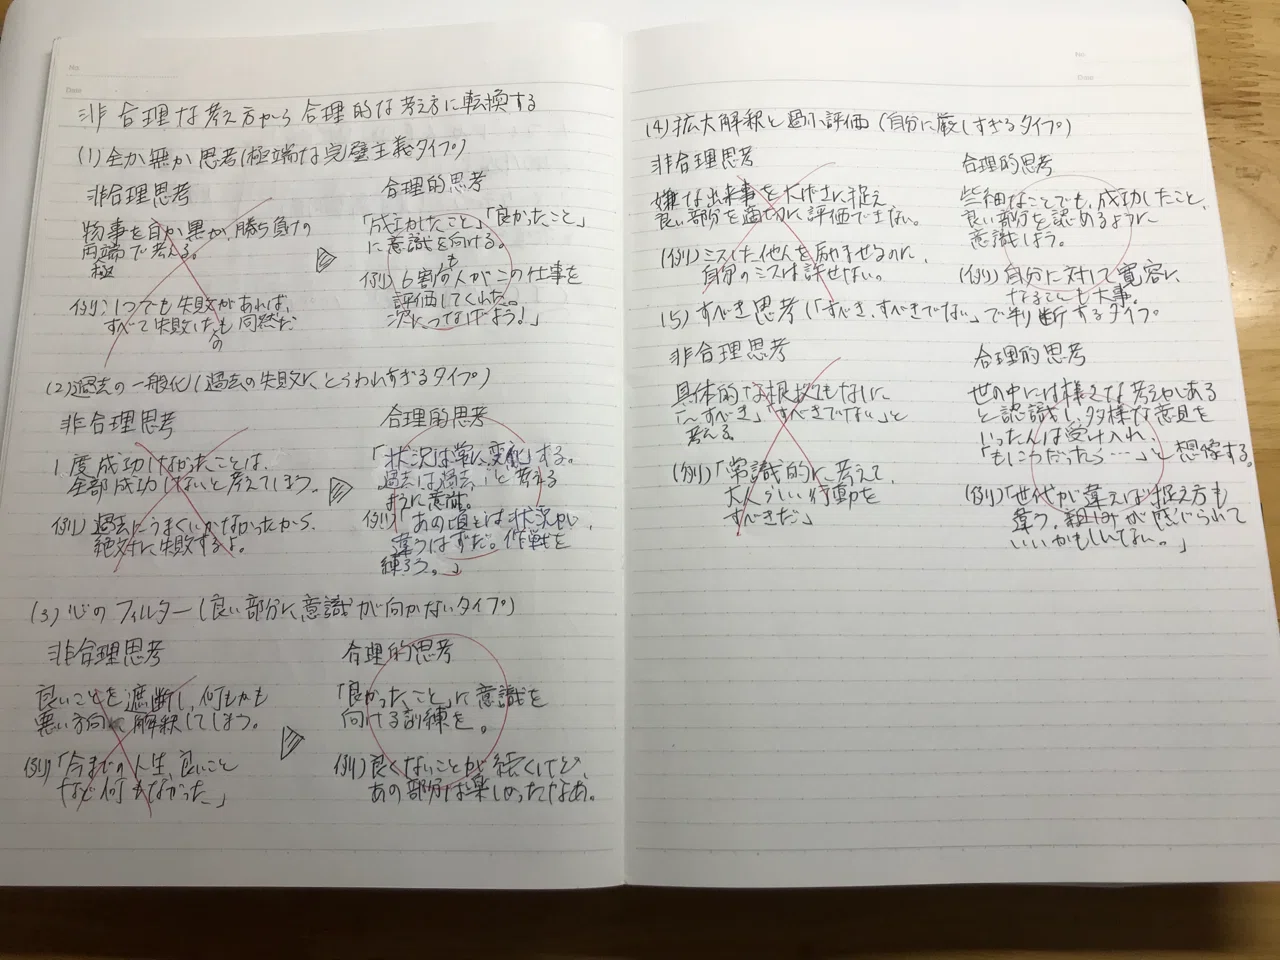 No.
Date
非合理な考え方から合理的な考え方に転換する
(1)全か無か思考(極端な完璧主義タイプ)
非合理思考
物事を白か黒か、勝ち負けの
両端で考える。
極
例)：1つでも失敗があれば、
すべて失敗したも同然だ
の
合理的思考
「成功したこと」「良かったこと」
に意識を向ける。
も
例)6割の人がこの仕事を
評価してくれた。
次につなげよう！」
(2)過去の一般化(過去の失敗にとらわれすぎるタイプ)
非合理思考
1度成功しなかったことは、
全部成功しないと考えてしまう。
例)過去にうまくいかなかったから、
絶対に失敗するよ。
合理的思考
「状況は常に変化」する。
過去は過去、」と考える
ように意識。
例)「あの頃とは状況が
違うはずだ。作戦を
練ろう。」
(3)心のフィルター(良い部分に意識が向かないタイプ)
非合理思考
良いことを遮断し、何もかも
悪い方向に解釈してしまう。
例)「今までの人生、良いこと
など何もなかった」
合理的思考
「良かったこと」に意識を
向ける訓練を。
例)良くないことが続くけど、
あの部分は楽しかったなあ。
No.
Date
(4)拡大解釈と過小評価(自分に厳しすぎるタイプ)
非合理思考
嫌な出来事を大げさに捉え
良い部分を適切に評価できない。
(例)ミスした他人を励ませるのに、
自分のミスは許せない。
合理的思考
些細なことでも、成功したこと、
良い部分を認めるように
意識しよう。
(例)自分に対して寛容に
なることも大事。
(5)すべき思考(「すべき、すべきでない」で判断するタイプ。
非合理思考
具体的な根拠もないに
「〜すべき」「すべきでない」と
考える。
(例)「常識的に考えて、
大人らしい行動を
すべきだ」
合理的思考
世の中には様々な考えがある
と認識し、多様な意見を
いったんは受け入れ、
「もしこうだったら……」と想像する。
(例)「世代が違えば捉え方も
違う。親しみが感じられて
いいかもしれない。」